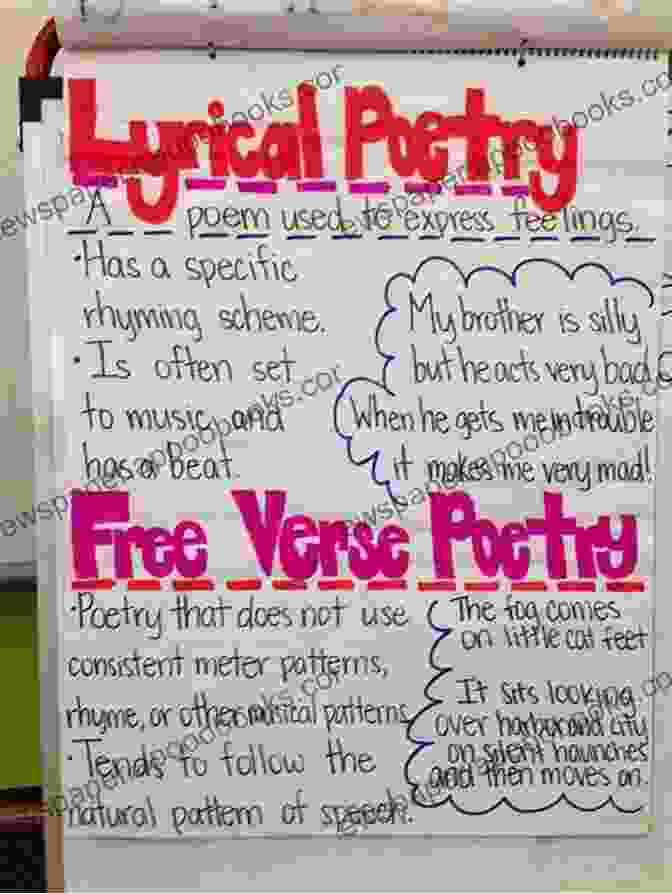 Lyrical Poetry
A poem used to express feelings.
·Has a specific
rhyming scheme.
·Is often set
to music, and
has a beat.
My brother is silly
but he acts very bad.
When he gets me in trouble
it makes me very mad!
Free Verse Poetry
·Poetry that does not use
consistent meter patterns,
rhyme, or other musical patterns.
·Tends to follow the
natural pattern of speech.
The fog comes
on little cat feet
It sits looking
over harbor and city
on silent haunches
and then moves on.